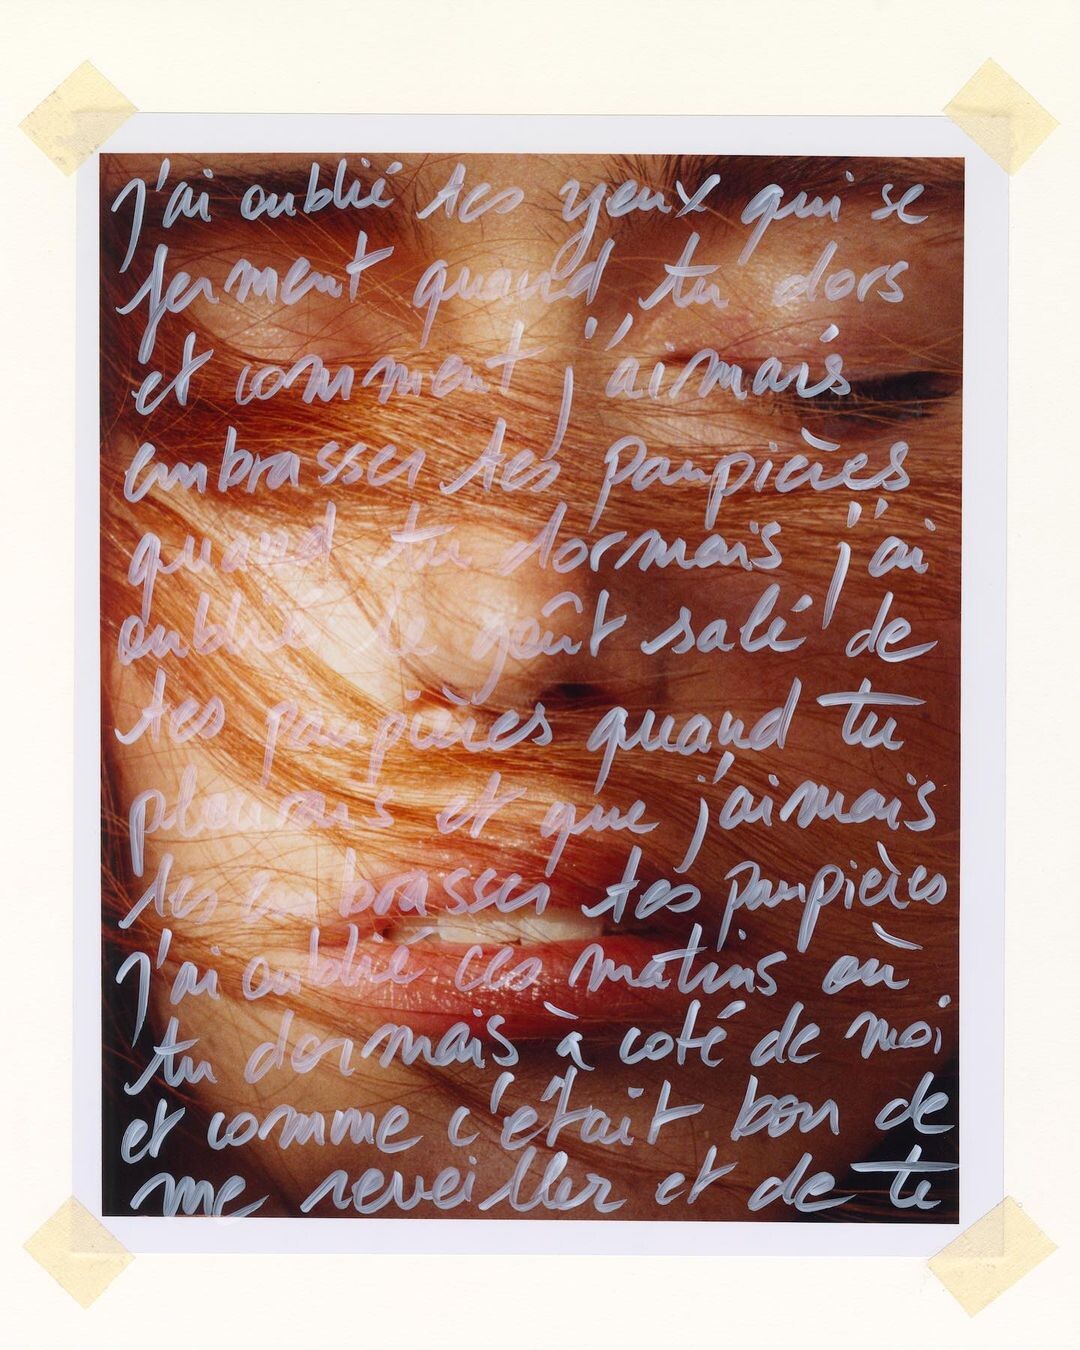 j'ai oublié tes yeux qui se
ferment quand tu dors
et comment j'aimais
embrasser tes paupières
quand tu dormais j'ai
oublié le goût salé de
tes paupières quand tu
pleurais et que j'aimais
les embrasser tes paupières
j'ai oublié ces matins où
tu dormais à coté de moi
et comme c'était bon de
me reveiller et de te